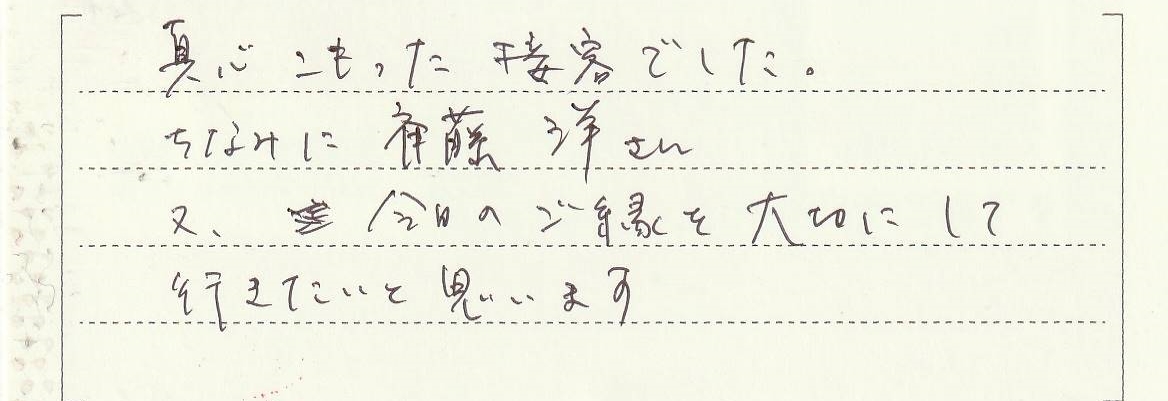 真心こもった接客でした。
ちなみに斉藤洋さん
又、今日のご縁を大切にして
行きたいと思います